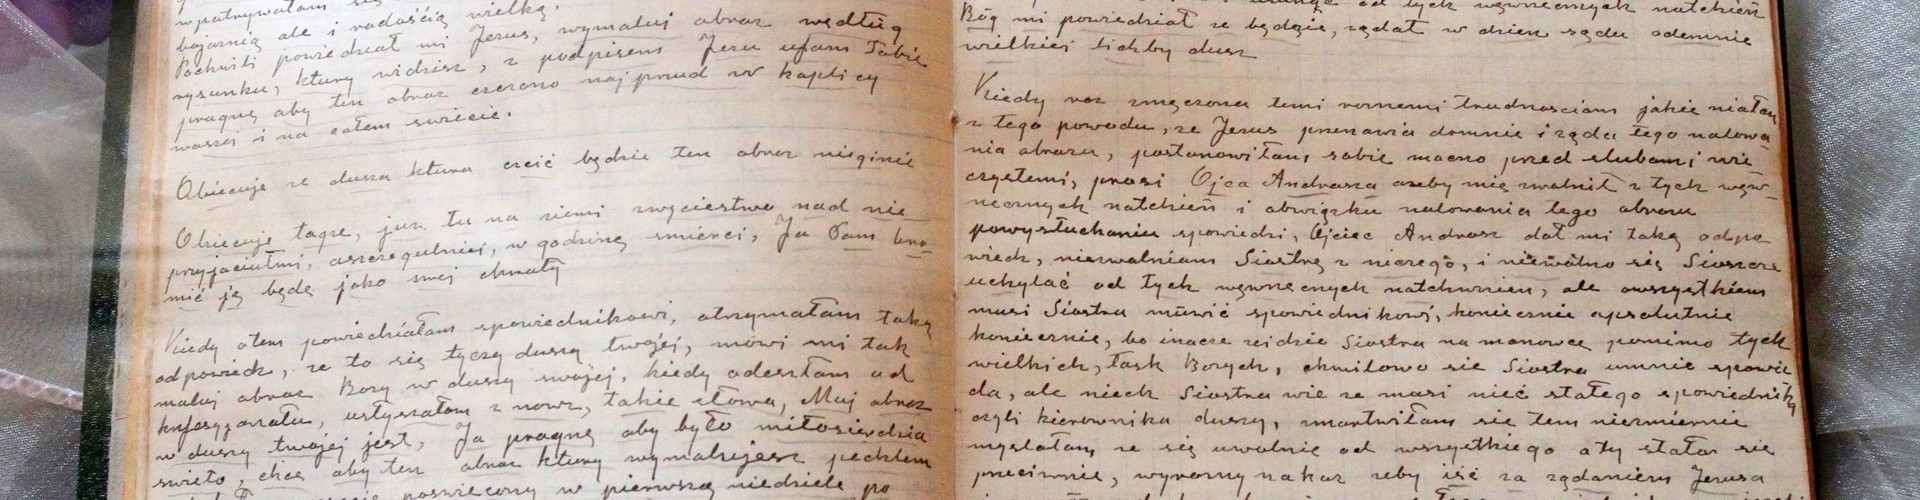 wpatrywałam się
bojaźnią ale i radością wielką.
Pochwili powiedział mi Jezus, wymaluj obraz według
rysunku, ktury widzisz, z podpisem Jezu ufam Tobie
pragnę aby ten obraz czczono najprzud w kaplicy
waszej i na całem świecie.
Obiecuje ze dusza ktura czcić będzie ten obraz nieginie
Obiecuję taqże, juz tu na ziemi zwycięstwo nad nie
przyjaciułmi, aszczegulniej, w godzinę śmierci, Ja Sam bro-
nić ją będę jako swej chwały
Kiedy otem powiedziałam spowiednikowi, otrzymałam taką
odpowiedz, ze to się tyczy duszy twojej, mówi mi tak
maluj obraz Bozy w duszy swojej, kiedy odeszłam od
kąfesyjonału, usłyszałam z nowz, takie słowa, Muj obraz
w duszy twojej jest, Ja pragnę aby było miłosierdzia
święto, chcę aby ten obraz ktury wymalujesz pędzlem
poswięcony w pierwszą niedzielę po
od tych wewnecznych natchień
Bóg mi powiedział ze będzie, ządał w dzien sądu odemnie
wielkiej lichby dusz
Kiedy raz zmęczona temi roznemi trudnosciam jakie miałam
z tego powodu, ze Jezus przemawia domnie i ząda tego malowa-
nia obrazu, postanowiłam sobie mocno przed slubami wie
czystemi, prosi Ojca Andrasza azeby mię zwolnił z tych wew-
necznych natchień i obwiązku malowania tego obrazu
powysłuchaniu spowiedzi, Ojciec Andrasz dał mi taką odpo
wiedz, niezwalniam Siostrę z niczego, i niewolno się Siostrze
uchylać od tych wewnecznych natchnien, ale owszystkiem
musi Siostra mówić spowiednikowi, koniecznie apsolutnie
koniecznie, bo inacze zeidzie Siostra na manowce pomimo tych
wielkich, łask Bozych, chmilowo sie Siostra umnie spowia
da, ale niech Siostra wie ze musi mieć stałego spowiednika
czyli kierownika duszy, zmartwiłam sie tem niezmiernie
myslałam ze się uwolnie od wszystkiego aty stało sie
przeciwnie, wyrazny nakaz zeby iść za ządaniem Jezusa